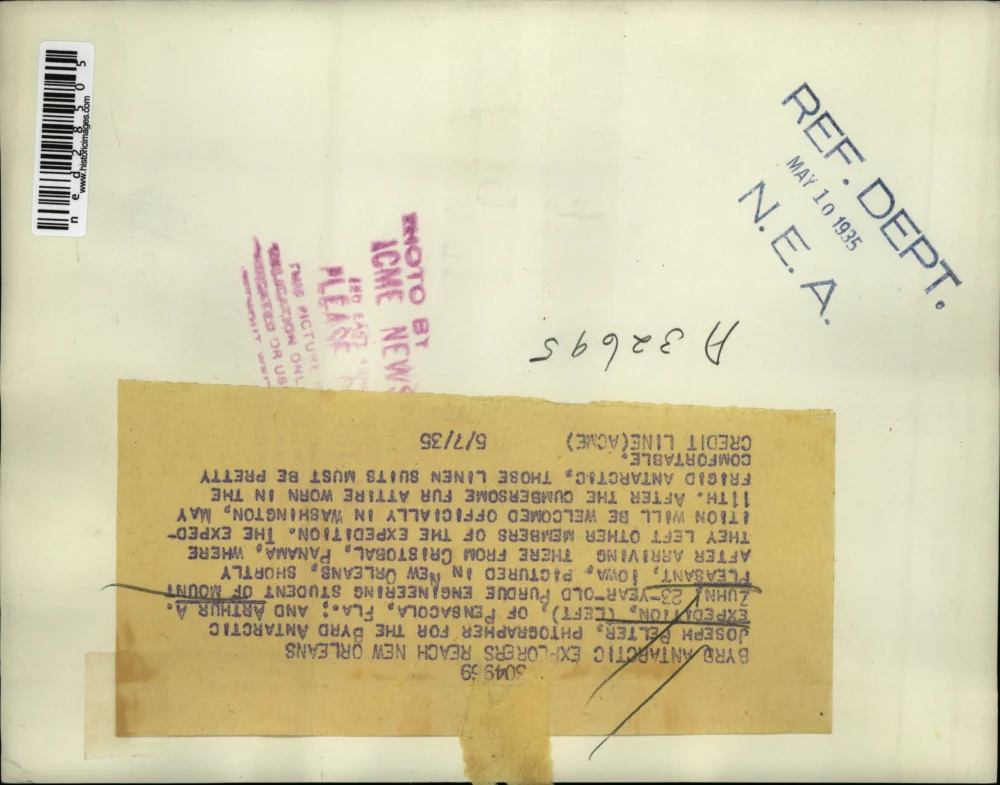 304969
BYRD ANTARCTIC EXPLORERS REACH NEW ORLEANS
JOSEPH PELTER, PHTOGRAPHER FOR THE BYRD ANTARCTIC
EXPEDITION, (LEFT), OF PENSACOLA, FLA.; AND ARTHUR A.
ZUHN, 23-YEAR-OLD PURDUE ENGINEERING STUDENT OF MOUNT
PLEASANT, IOWA, PICTURED IN NEW ORLEANS, SHORTLY
AFTER ARRIVING THERE FROM CRISTOBAL, PANAMA, WHERE
THEY LEFT OTHER MEMBERS OF THE EXPEDITION. THE EXPED-
ITION WILL BE WELCOMED OFFICIALLY IN WASHINGTON, MAY
11TH. AFTER THE CUMBERSOME FUR ATTIRE WORN IN THE
FRIGID ANTARCTIC, THOSE LINEN SUITS MUST BE PRETTY
COMFORTABLE.
CREDIT LINE(ACME) 5/7/35
A 32695
REF. DEPT.
MAY 10 1935
N. E. A.
PHOTO BY
ACME NEWS
PLEASE
THIS PICTURE
www.historicimages.com
ned28505